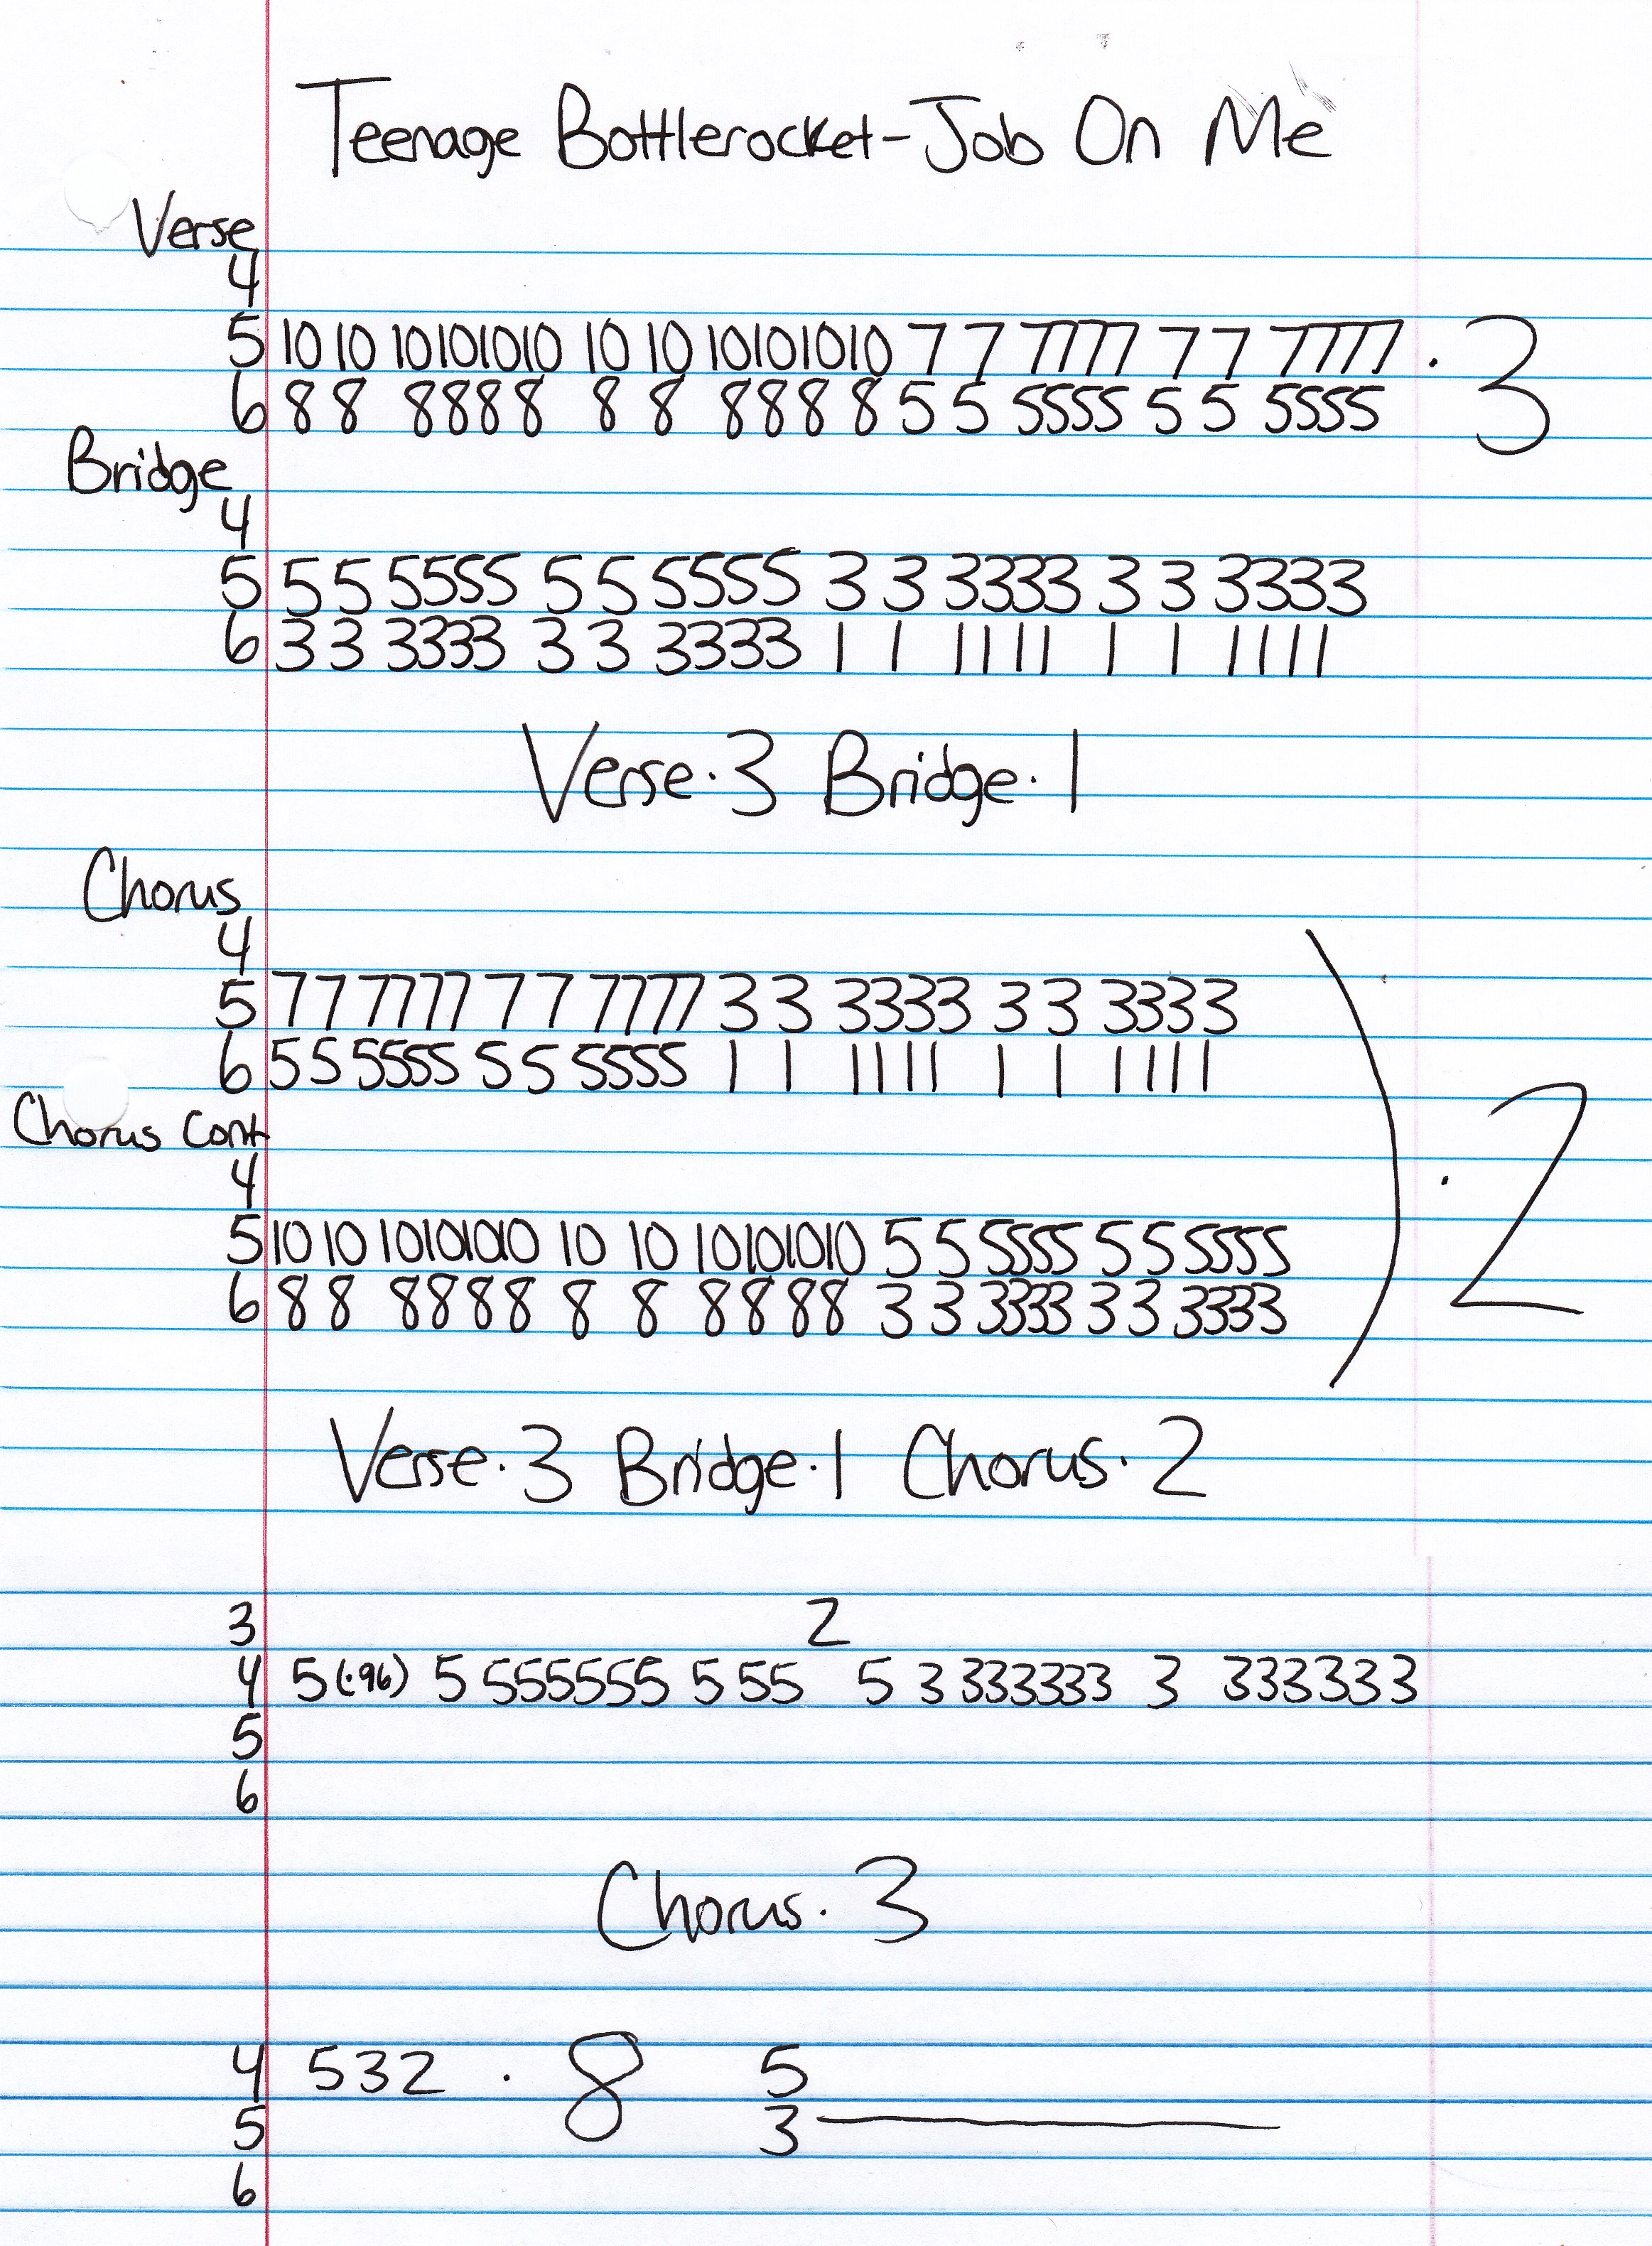 Teenage Bottlerocket-Job On Me
Verse
4
5 10 10 10101010 10 10 10101010 7 7 7777 7 7 7777 · 3
6 8 8 8888 8 8 8888 5 5 5555 5 5 5555
Bridge
4
5 5 5 5555 5 5 5555 3 3 3333 3 3 3333
6 3 3 3333 3 3 3333 1 1 1111 1 1 1111
Verse·3 Bridge·1
Chorus
4
5 7 7 7777 7 7 7777 3 3 3333 3 3 3333
6 5 5 5555 5 5 5555 1 1 1111 1 1 1111
) · 2
Chorus Cont
4
5 10 10 10101010 10 10 10101010 5 5 5555 5 5 5555
6 8 8 8888 8 8 8888 3 3 3333 3 3 3333
Verse·3 Bridge·1 Chorus·2
3 2
4 5(·96) 5 555555 5 55 5 3 333333 3 333333
5
6
Chorus·3
4 532 · 8 5
5 3
6